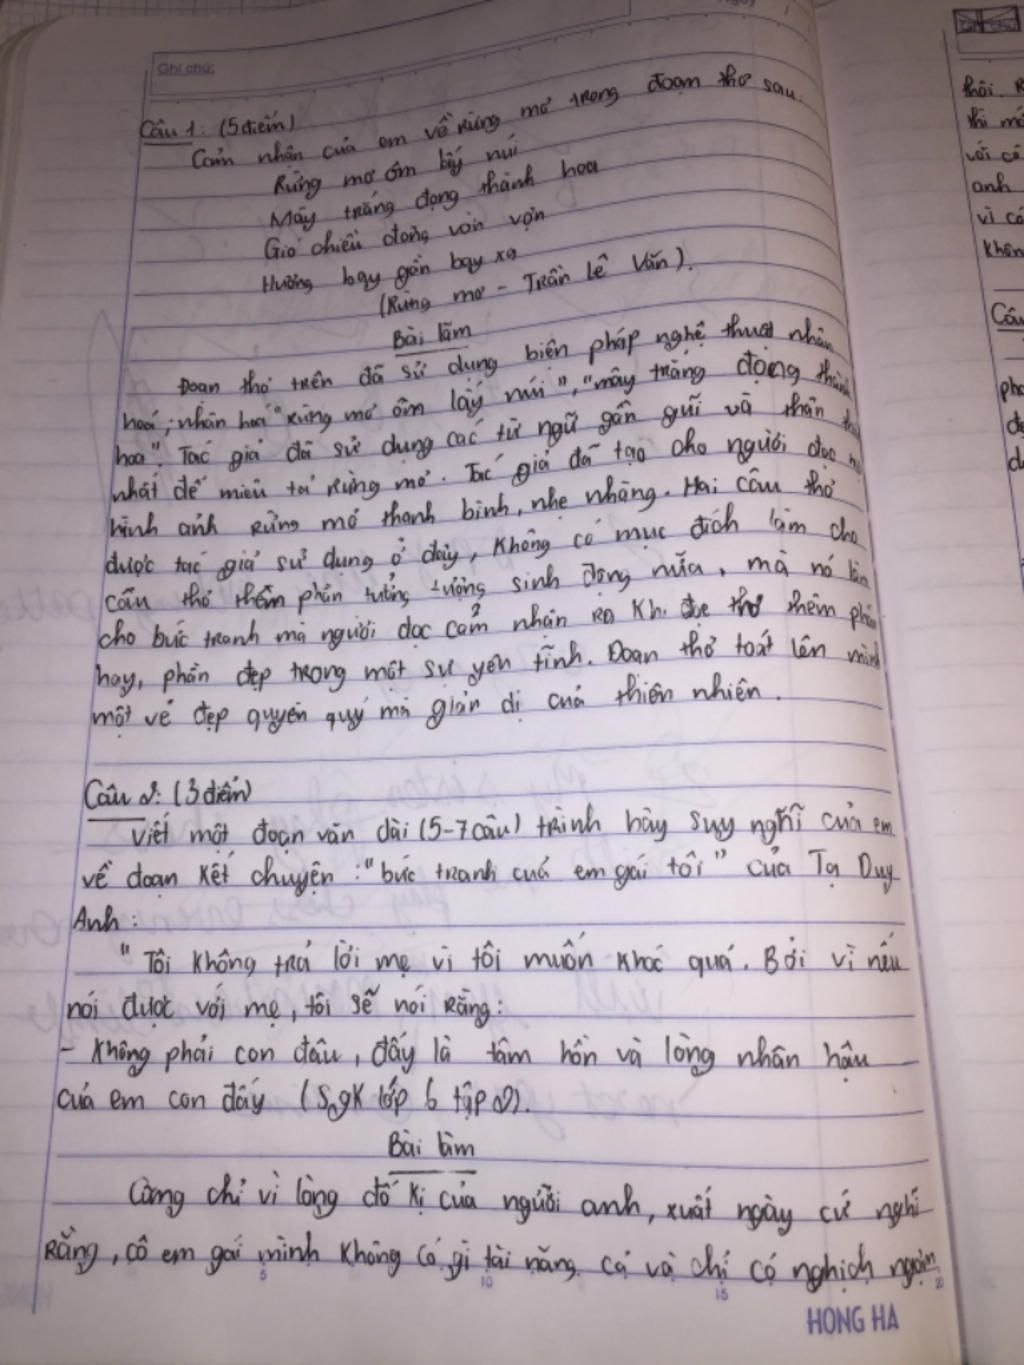 Ghi chú:
Câu 1: (5 điểm)
Cảm nhận của em về Rừng mơ trong đoạn thơ sau.
Rừng mơ ôm lấy núi
Mây trắng đọng thành hoa
Gió chiều đông vờn vợn
Hương bay gần bay xa
(Rừng mơ - Trần Lê Văn).
Bài làm
Đoạn thơ trên đã sử dụng biện pháp nghệ thuật nhân
hoá; nhân hoá "Rừng mơ ôm lấy núi", "mây trắng đọng thành
hoa". Tác giả đã sử dụng các từ ngữ gần gũi và thân
nhất để miêu tả Rừng mơ. Tác giả đã tạo cho người đọc
hình ảnh Rừng mơ thanh bình, nhẹ nhàng. Hai câu thơ
được tác giả sử dụng ở đây, không có mục đích làm cho
câu thơ thêm phần tưởng tượng sinh động nữa, mà nó làm
cho bức tranh mà người đọc cảm nhận Ra Khi đọc thơ thêm phần
hay, phần đẹp trong một sự yên tĩnh. Đoạn thơ toát lên mình
một vẻ đẹp quyến quý mà giản dị của thiên nhiên.
Câu 2: (3 điểm)
Viết một đoạn văn dài (5-7 câu) trình bày suy nghĩ của em
về đoạn kết chuyện: "bức tranh cuả em gái tôi" của Tạ Duy
Anh:
"Tôi không trả lời mẹ vì tôi muốn khóc quá. Bởi vì nếu
nói được với mẹ, tôi sẽ nói Rằng:
- Không phải con đâu, đấy là tâm hồn và lòng nhân hậu
của em con đấy (SgK lớp 6 tập 2).
Bài làm
Cũng chỉ vì lòng đố kị của người anh, suốt ngày cứ nghĩ
Rằng, cô em gái mình không có gì tài năng cả và chỉ có nghịch ngợm
5 10 15 20
HONG HA